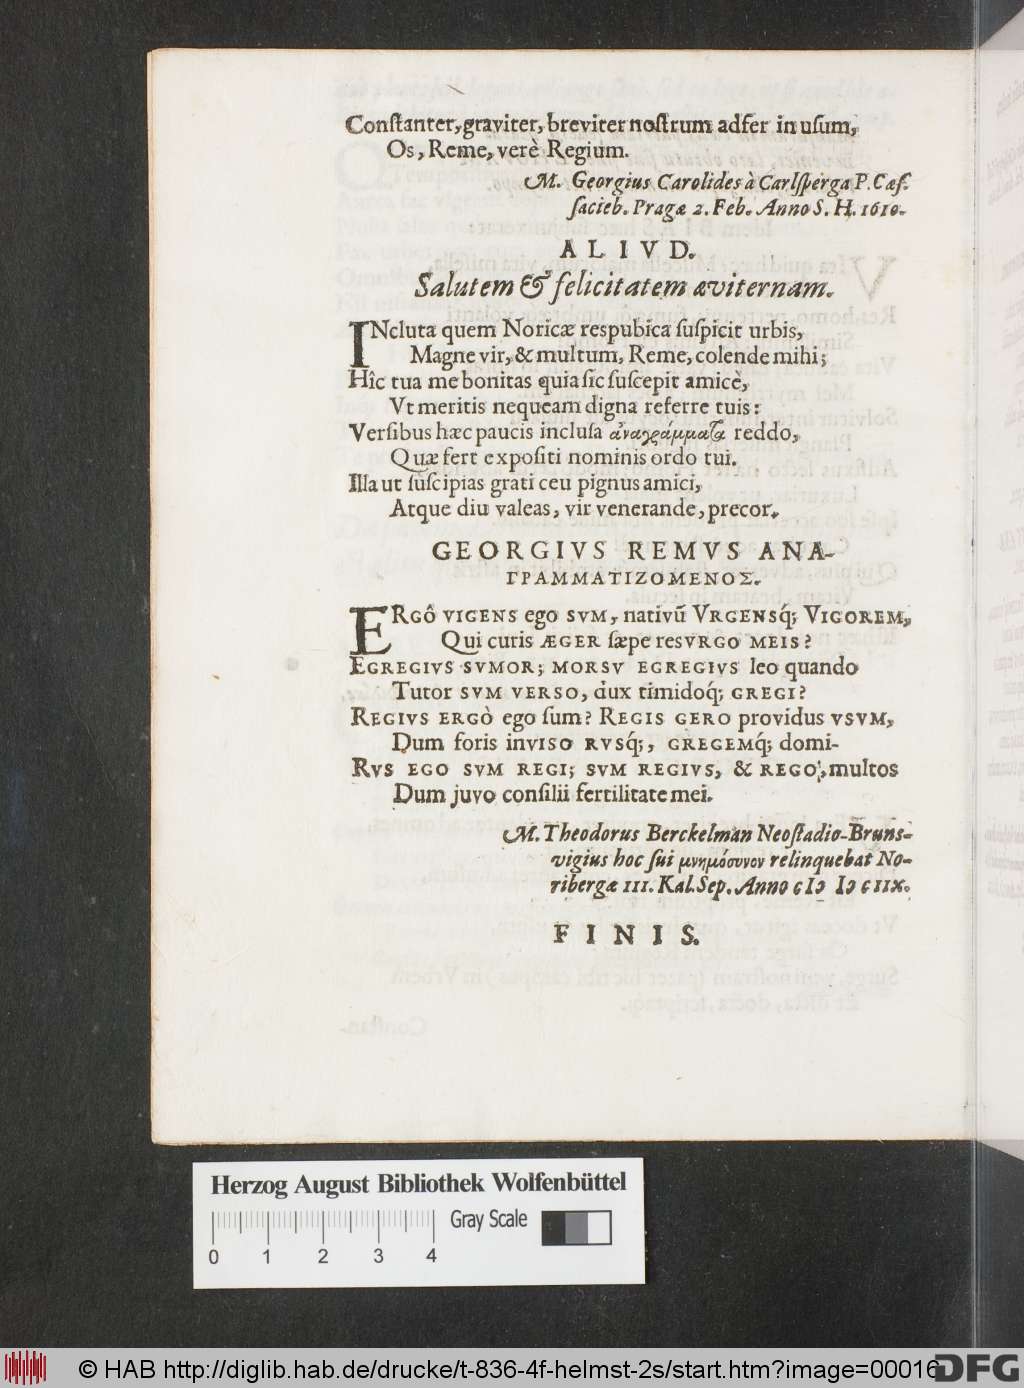 Conſtanter, graviter, breviter noſtrum adfer in uſum,
Os, Reme, verè Regium.
M. Georgius Carolides à Carlſperga P. Cæſ.
facieb. Pragæ 2. Feb. Anno S. H. 1610.
ALIVD.
Salutem & felicitatem æviternam.
INcluta quem Noricæ respublica ſuſpicit urbis,
Magne vir, & multum, Reme, colende mihi;
Hîc tua me bonitas quia ſic ſuſcepit amicè,
Vt meritis nequeam digna referre tuis:
Verſibus hæc paucis incluſa ἀναγράμματα reddo,
Quæ fert expoſiti nominis ordo tui.
Illa ut ſuſcipias grati ceu pignus amici,
Atque diu valeas, vir venerande, precor.
GEORGIVS REMVS ANA-
ΓΡΑΜΜΑΤΙΖΟΜΕΝΟΣ.
ERGÔ VIGENS ego SVM, nativũ VRGENSq́; VIGOREM,
Qui curis ÆGER ſæpe resVRGO MEIS?
EGREGIVS SVMOR; MORSV EGREGIVS leo quando
Tutor SVM VERSO, dux timidoq́; GREGI?
REGIVS ERGÒ ego ſum? REGIS GERO providus VSVM,
Dum foris invISO RVSq́;, GREGEMq́; domi-
RVS EGO SVM REGI; SVM REGIVS, & REGO, multos
Dum juvo conſilii fertilitate mei.
M. Theodorus Berckelman Neoſtadio-Bruns-
vigius hoc ſui μνημόσυνον relinquebat No-
ribergæ III. Kal. Sep. Anno cIↄ Iↄ cIIX.
FINIS.
Herzog August Bibliothek Wolfenbüttel
Gray Scale
0 1 2 3 4
© HAB http://diglib.hab.de/drucke/t-836-4f-helmst-2s/start.htm?image=00016
DFG